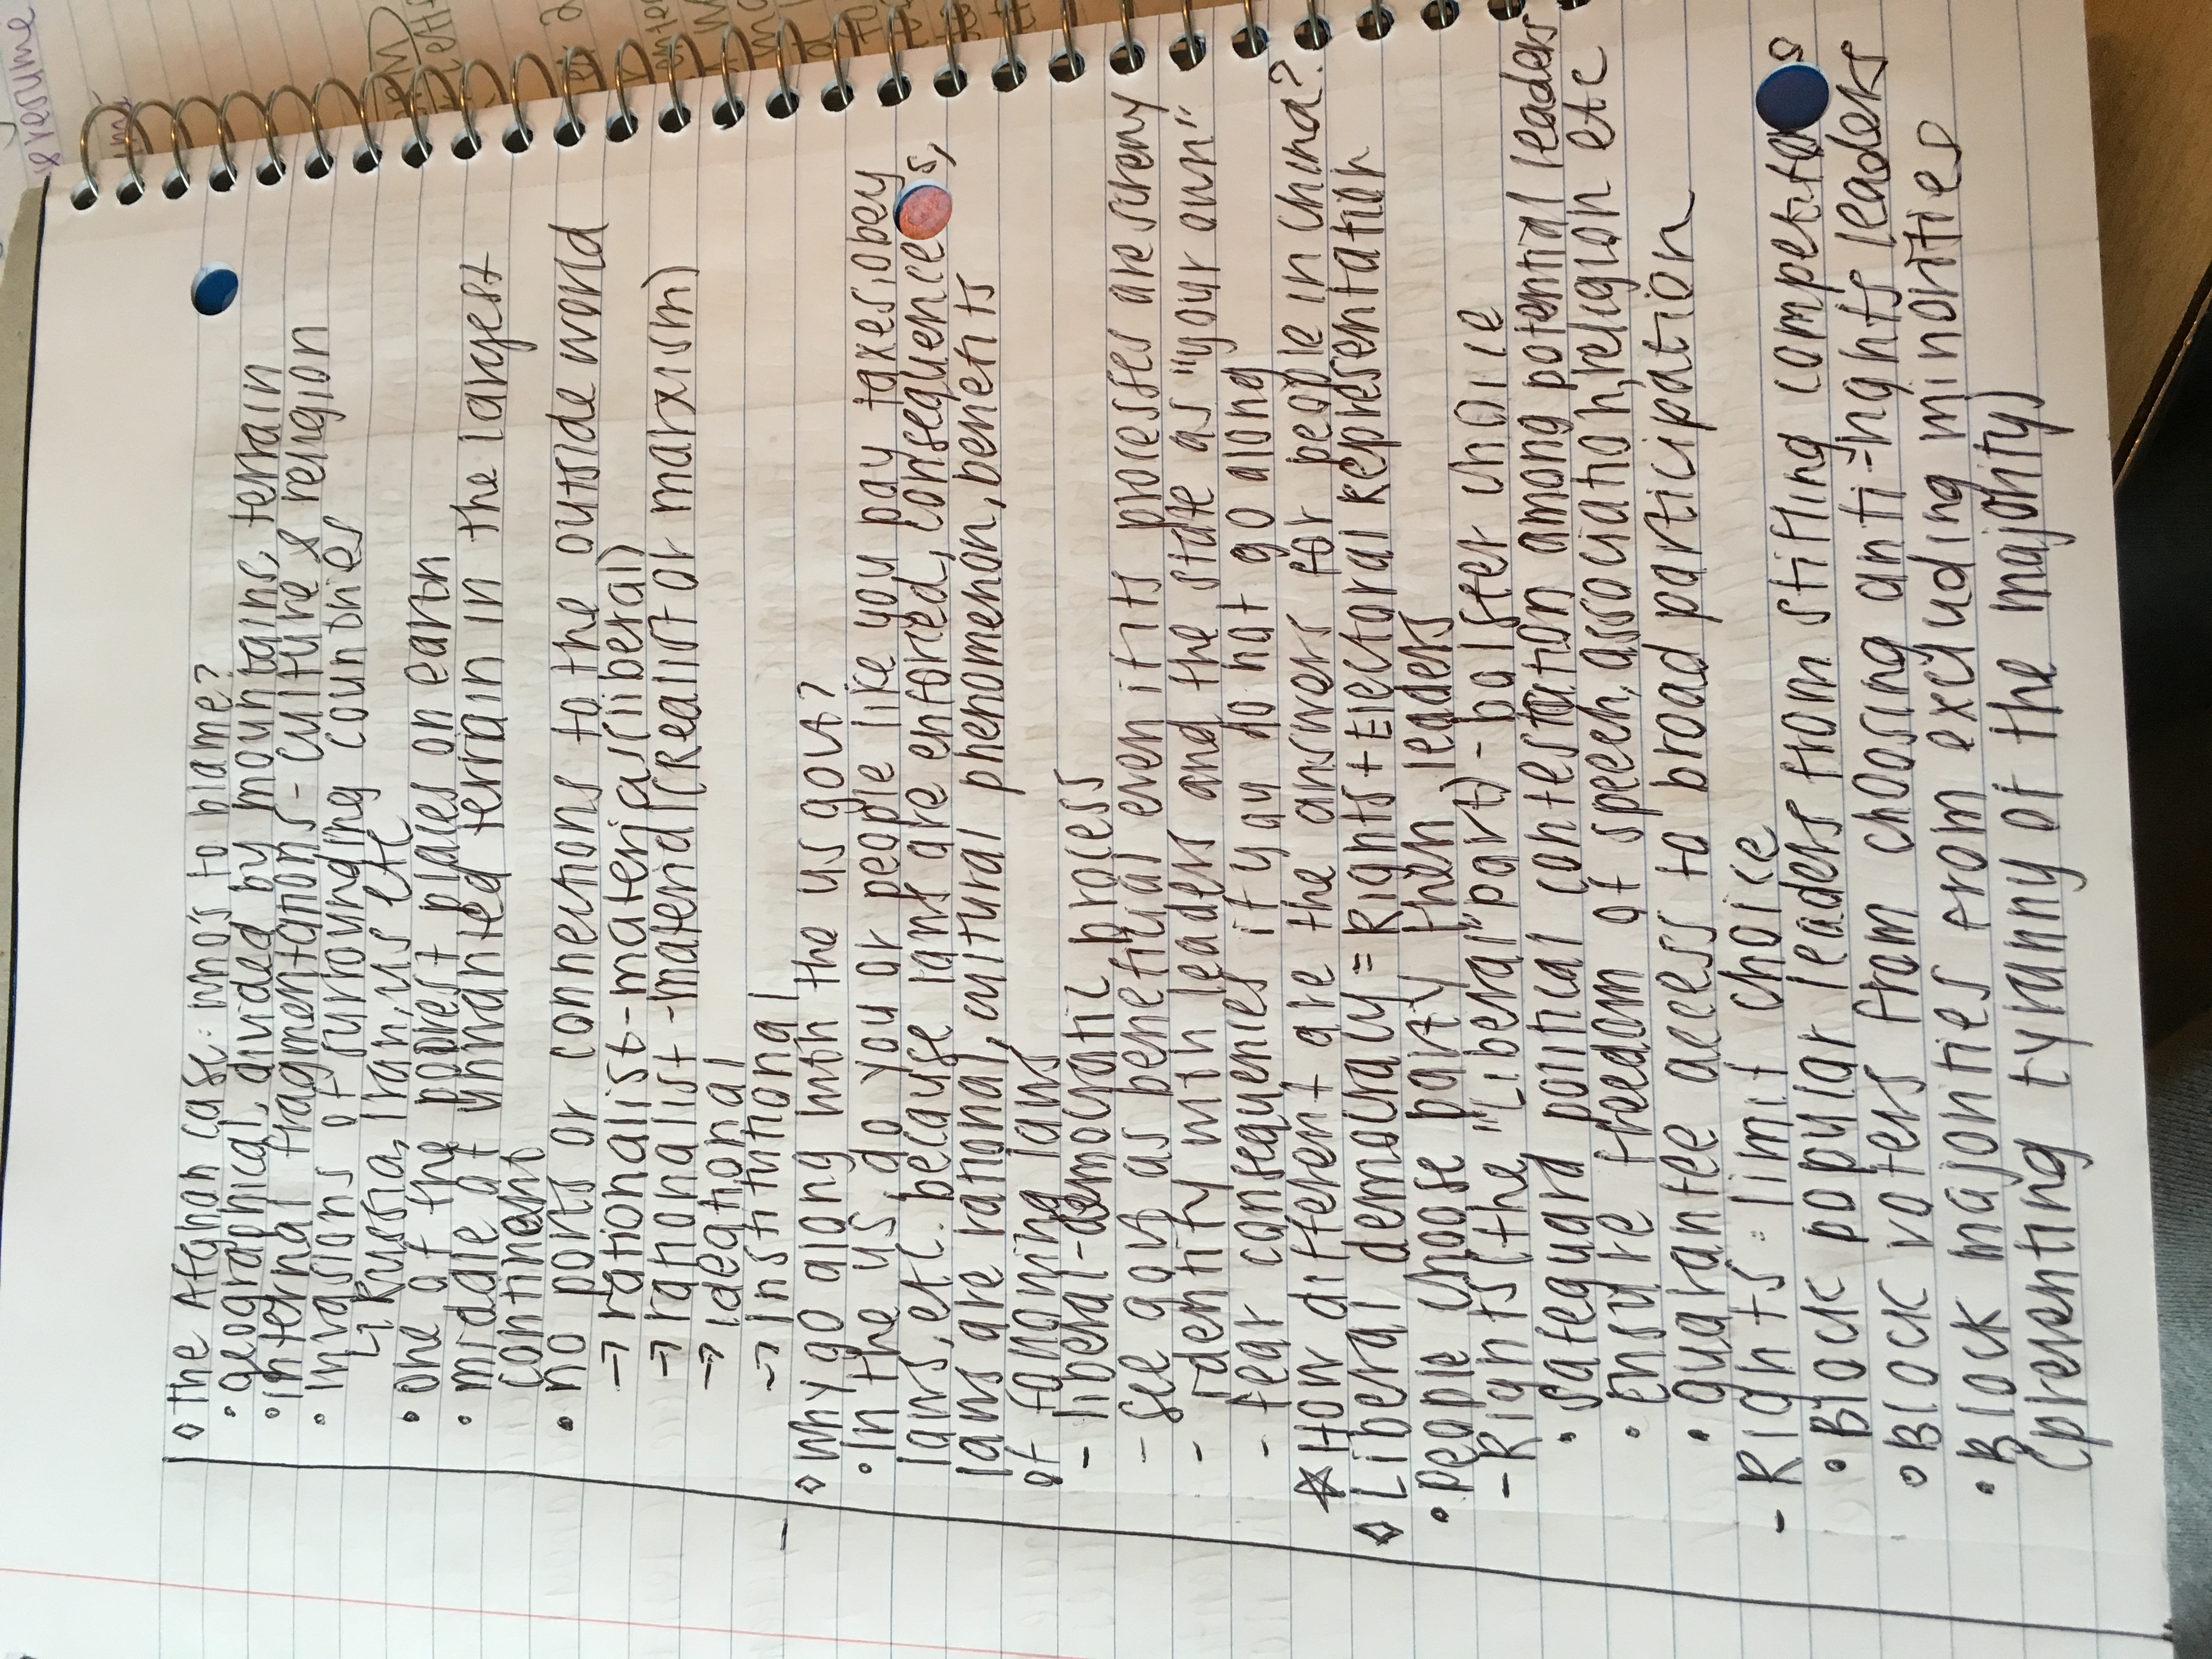 ◇ The Afghan case: who's to blame?
• geographical, divided by mountains, terrain
• internal fragmentations - culture & religion
• invasions of surrounding countries
↳ Russia, Iran, US etc
• one of the poorest places on earth
• middle of unwanted terrain in the largest
continent
• no ports or connections to the outside world
→ rationalist - materialist (liberal)
→ rationalist - material (realist or marxism)
→ ideational
→ institutional
◇ Why go along with the US govt?
• In the US, do you or people like you pay taxes, obey
laws, etc. because laws are enforced, consequences,
laws are rational, cultural phenomenon, benefits
of following laws
- liberal-democratic process
- see gov as beneficial even if its processes are
- identify with leaders and the state as "your own"
- fear consequencies if you do not go along
☆ How different are the answers for people in China?
◇ Liberal democracy = Rights + Electoral Representation
• people choose party, then leaders
- Rights (the "Liberal" part) - bolster choice
• safeguard political contestation among potential leaders
• ensure freedom of speech, association, religion etc
• guarantee access to broad participation
- Rights: limit choice
• Block popular leaders from stifling competitors
• Block voters from choosing anti-rights leaders
• Block majorities from excluding minorities
(preventing tyranny of the majority)
& resume